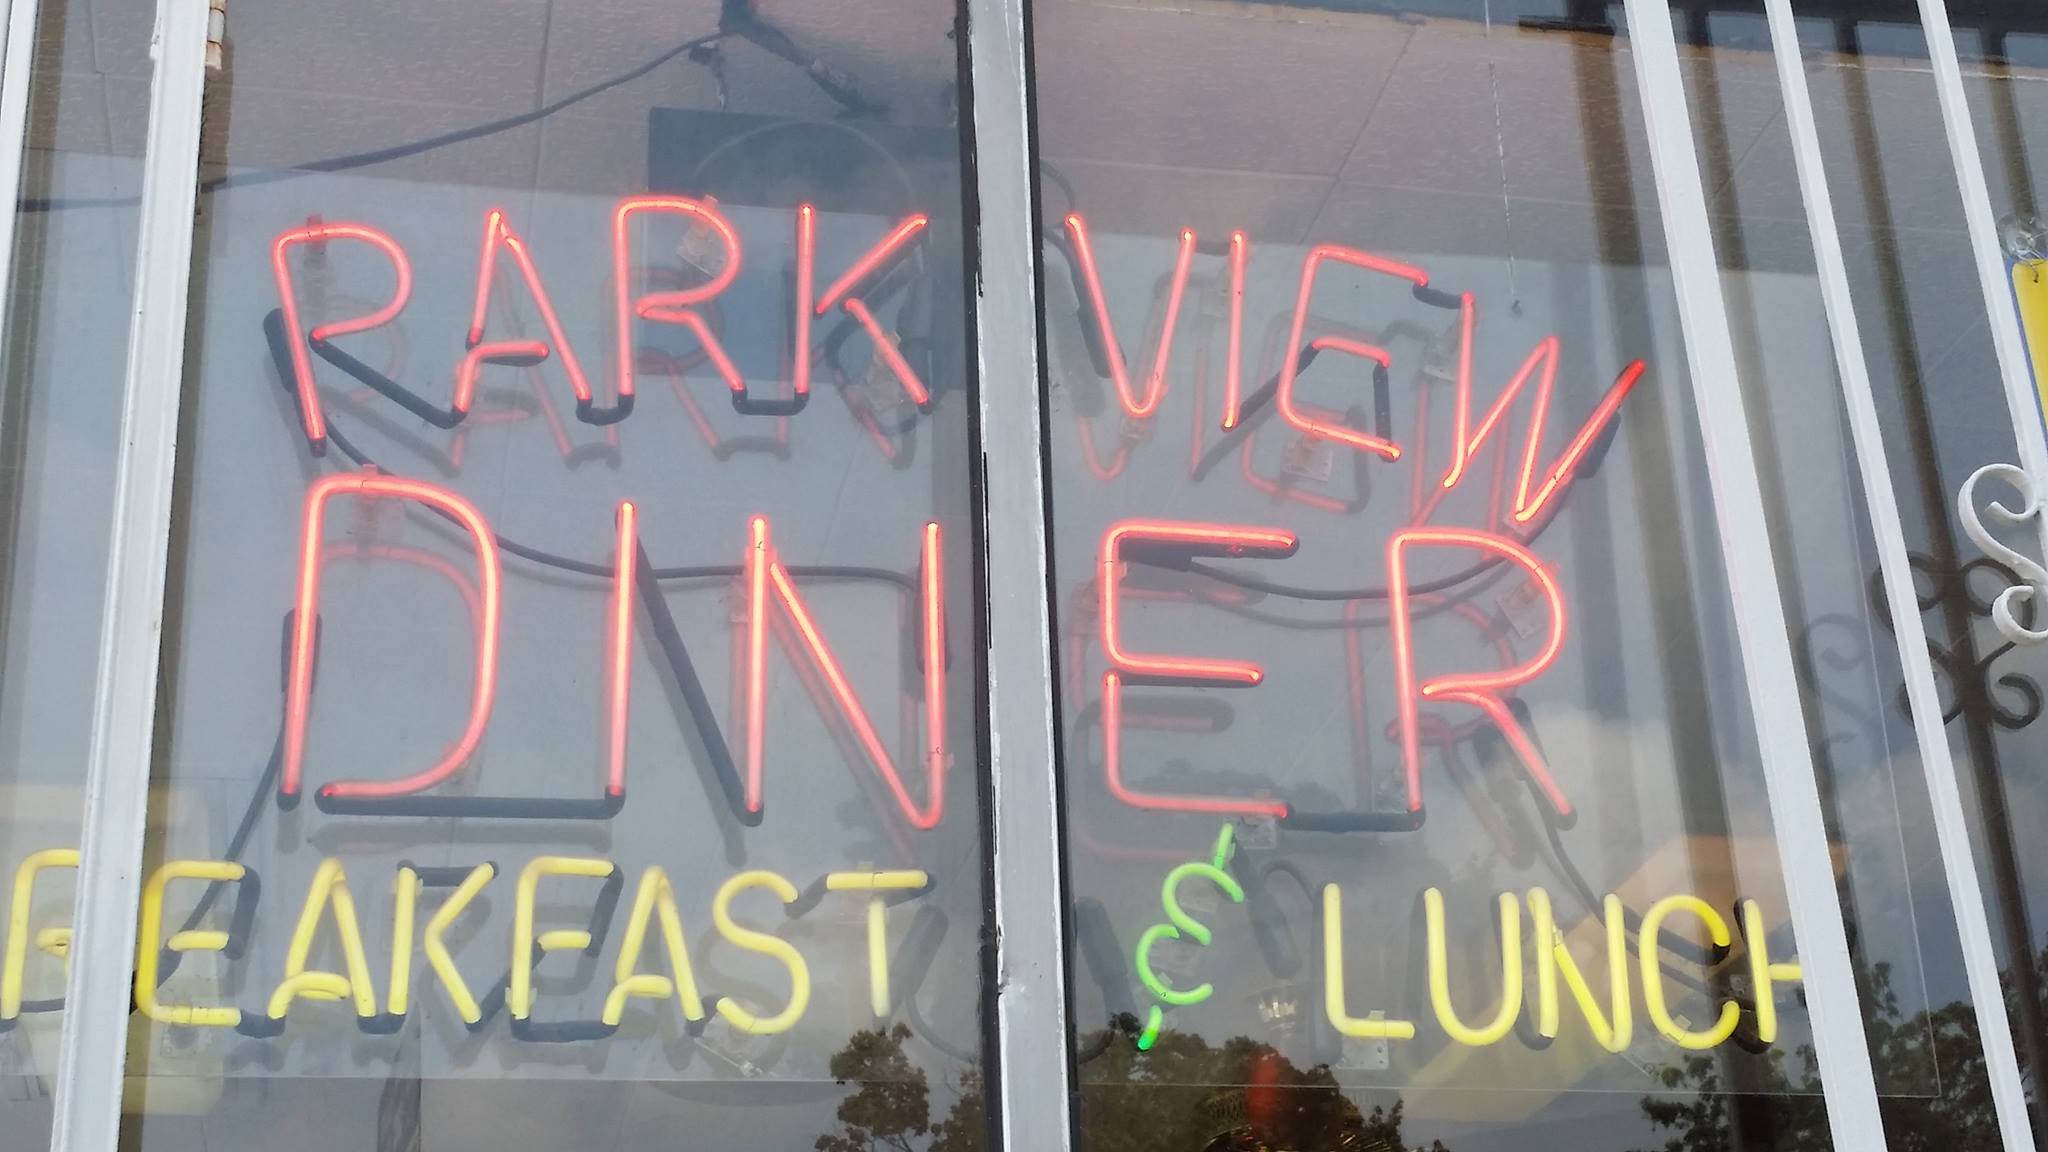 PARK VIEW
DINER
BREAKFAST & LUNCH